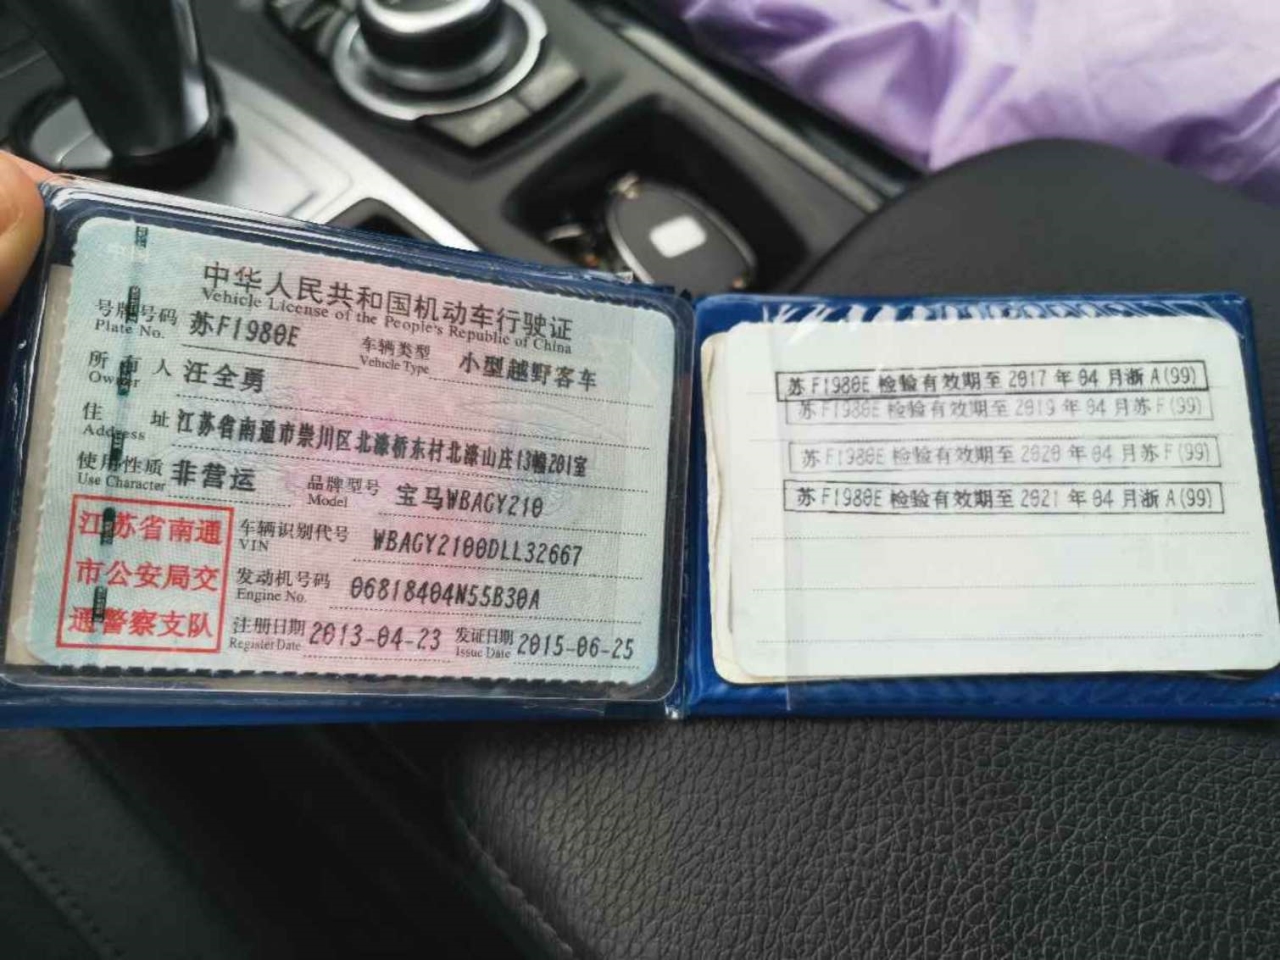 中华人民共和国机动车行驶证
Vehicle License of the People's Republic of China
号牌号码 苏F1980E 车辆类型 小型越野客车
Plate No. Vehicle Type
所有人 汪全勇
Owner
住址 江苏省南通市崇川区北濠桥东村北濠山庄13幢201室
Address
使用性质 非营运 品牌型号 宝马WBAGY210
Use Character Model
江苏省南通
市公安局交
通警察支队
车辆识别代号 WBAGY2100DLL32667
VIN
发动机号码 06818404N55B30A
Engine No.
注册日期 2013-04-23 发证日期 2015-06-25
Register Date Issue Date
苏F1980E 检验有效期至2017年04月浙A(99)
苏F1980E 检验有效期至2019年04月苏F(99)
苏F1980E 检验有效期至2020年04月苏F(99)
苏F1980E 检验有效期至2021年04月浙A(99)